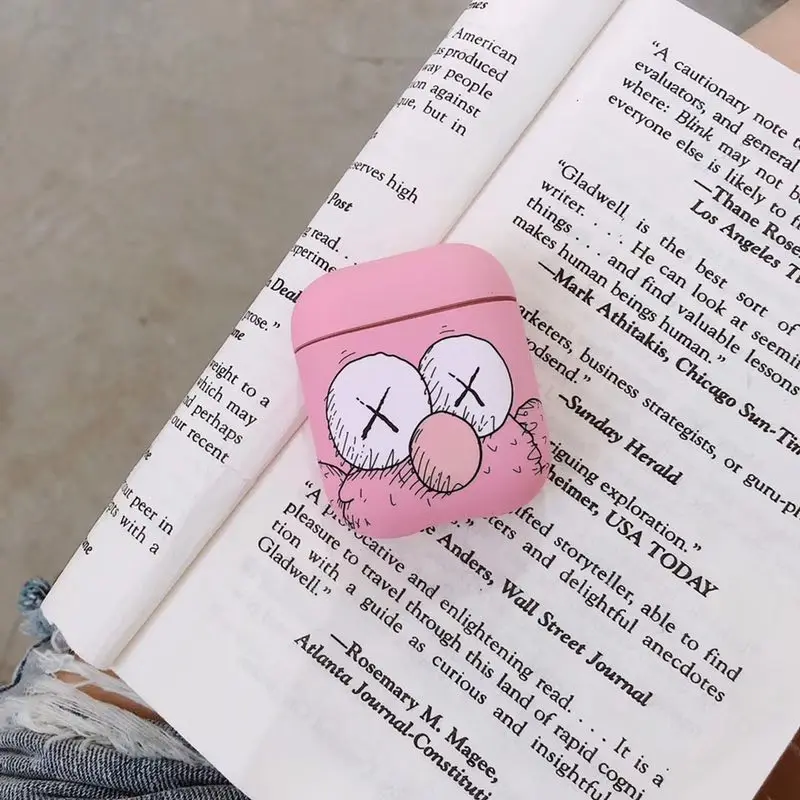 nes
American
as produced
way people
on against
que, but in
serves high
Post
g read. . .
xperime
n Deal
ne
prose.”
me
weight to a
which may
nd perhaps
our recent
ut peer in
ts with a
ne
“A cautionary note to
evaluators, and general
where: Blink may not b
everyone else is likely to fi
—Thane Rose
Los Angeles T
“Gladwell is the best sort of
writer. . . . He can look at seemin
things . . . and find valuable lessons
makes human beings human.”
—Mark Athitakis, Chicago Sun-Tim
arketers, business strategists, or guru-pl
odsend.”
—Sunday Herald
riguing exploration.”
heimer, USA TODAY
ifted storyteller, able to find
ters and delightful anecdotes
Anders, Wall Street Journal
“A p
cative and enlightening read. . . . It is a
pleasure to travel through this land of rapid cogni
tion with a guide as curious and insightful
Gladwell.”
—Rosemary M. Magee,
Atlanta Journal-Constituti